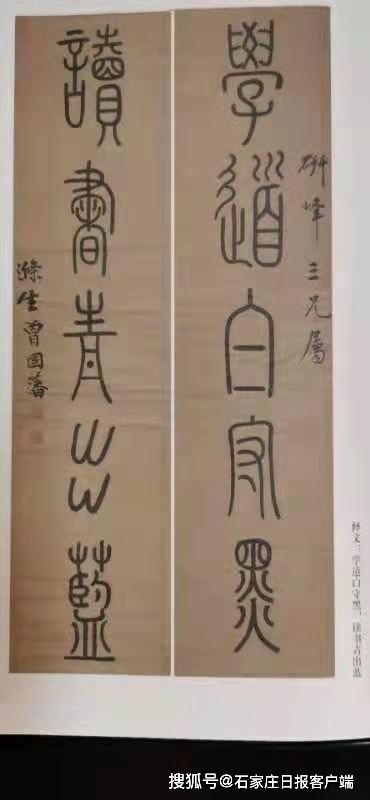 研峰三兄屬
學道白守黑
讀書青出藍
滌生曾國藩
释文：学道白守黑，读书青出蓝
搜狐号@石家庄日报客户端